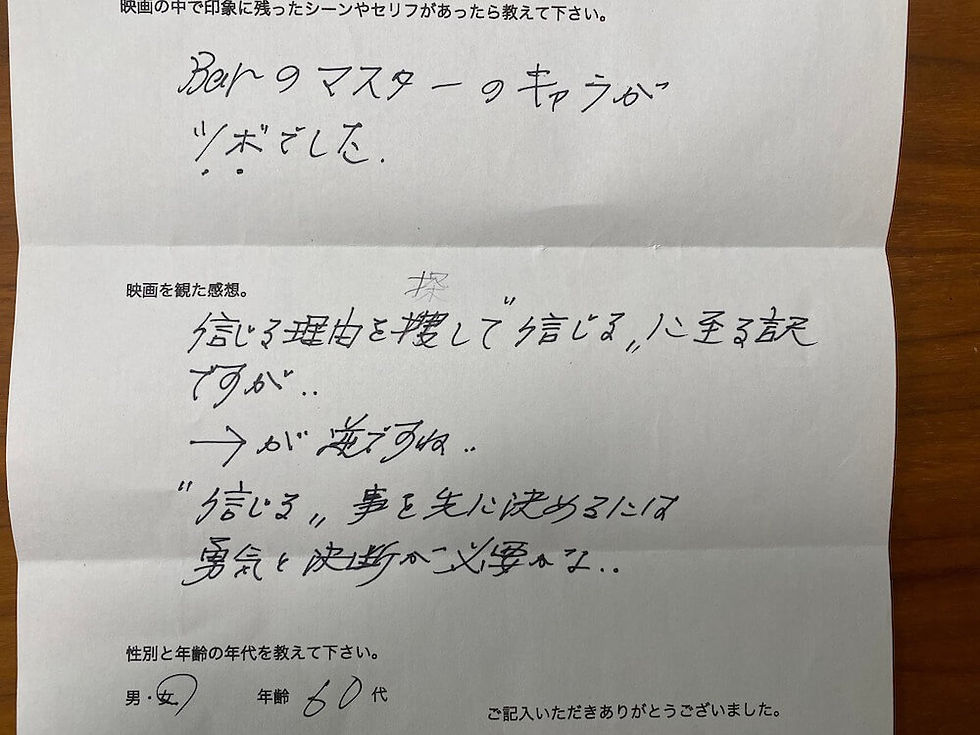 映画の中で印象に残ったシーンやセリフがあったら教えて下さい。
Barのマスターのキャラが
ツボでした.
映画を観た感想。
探
信じる理由を捜して"信じる〟に至る訳
ですが..
→が逆ですね..
"信じる〟事を先に決めるには
勇気と決断が必要かな..
性別と年齢の年代を教えて下さい。
男・女 年齢 60代
ご記入いただきありがとうございました。